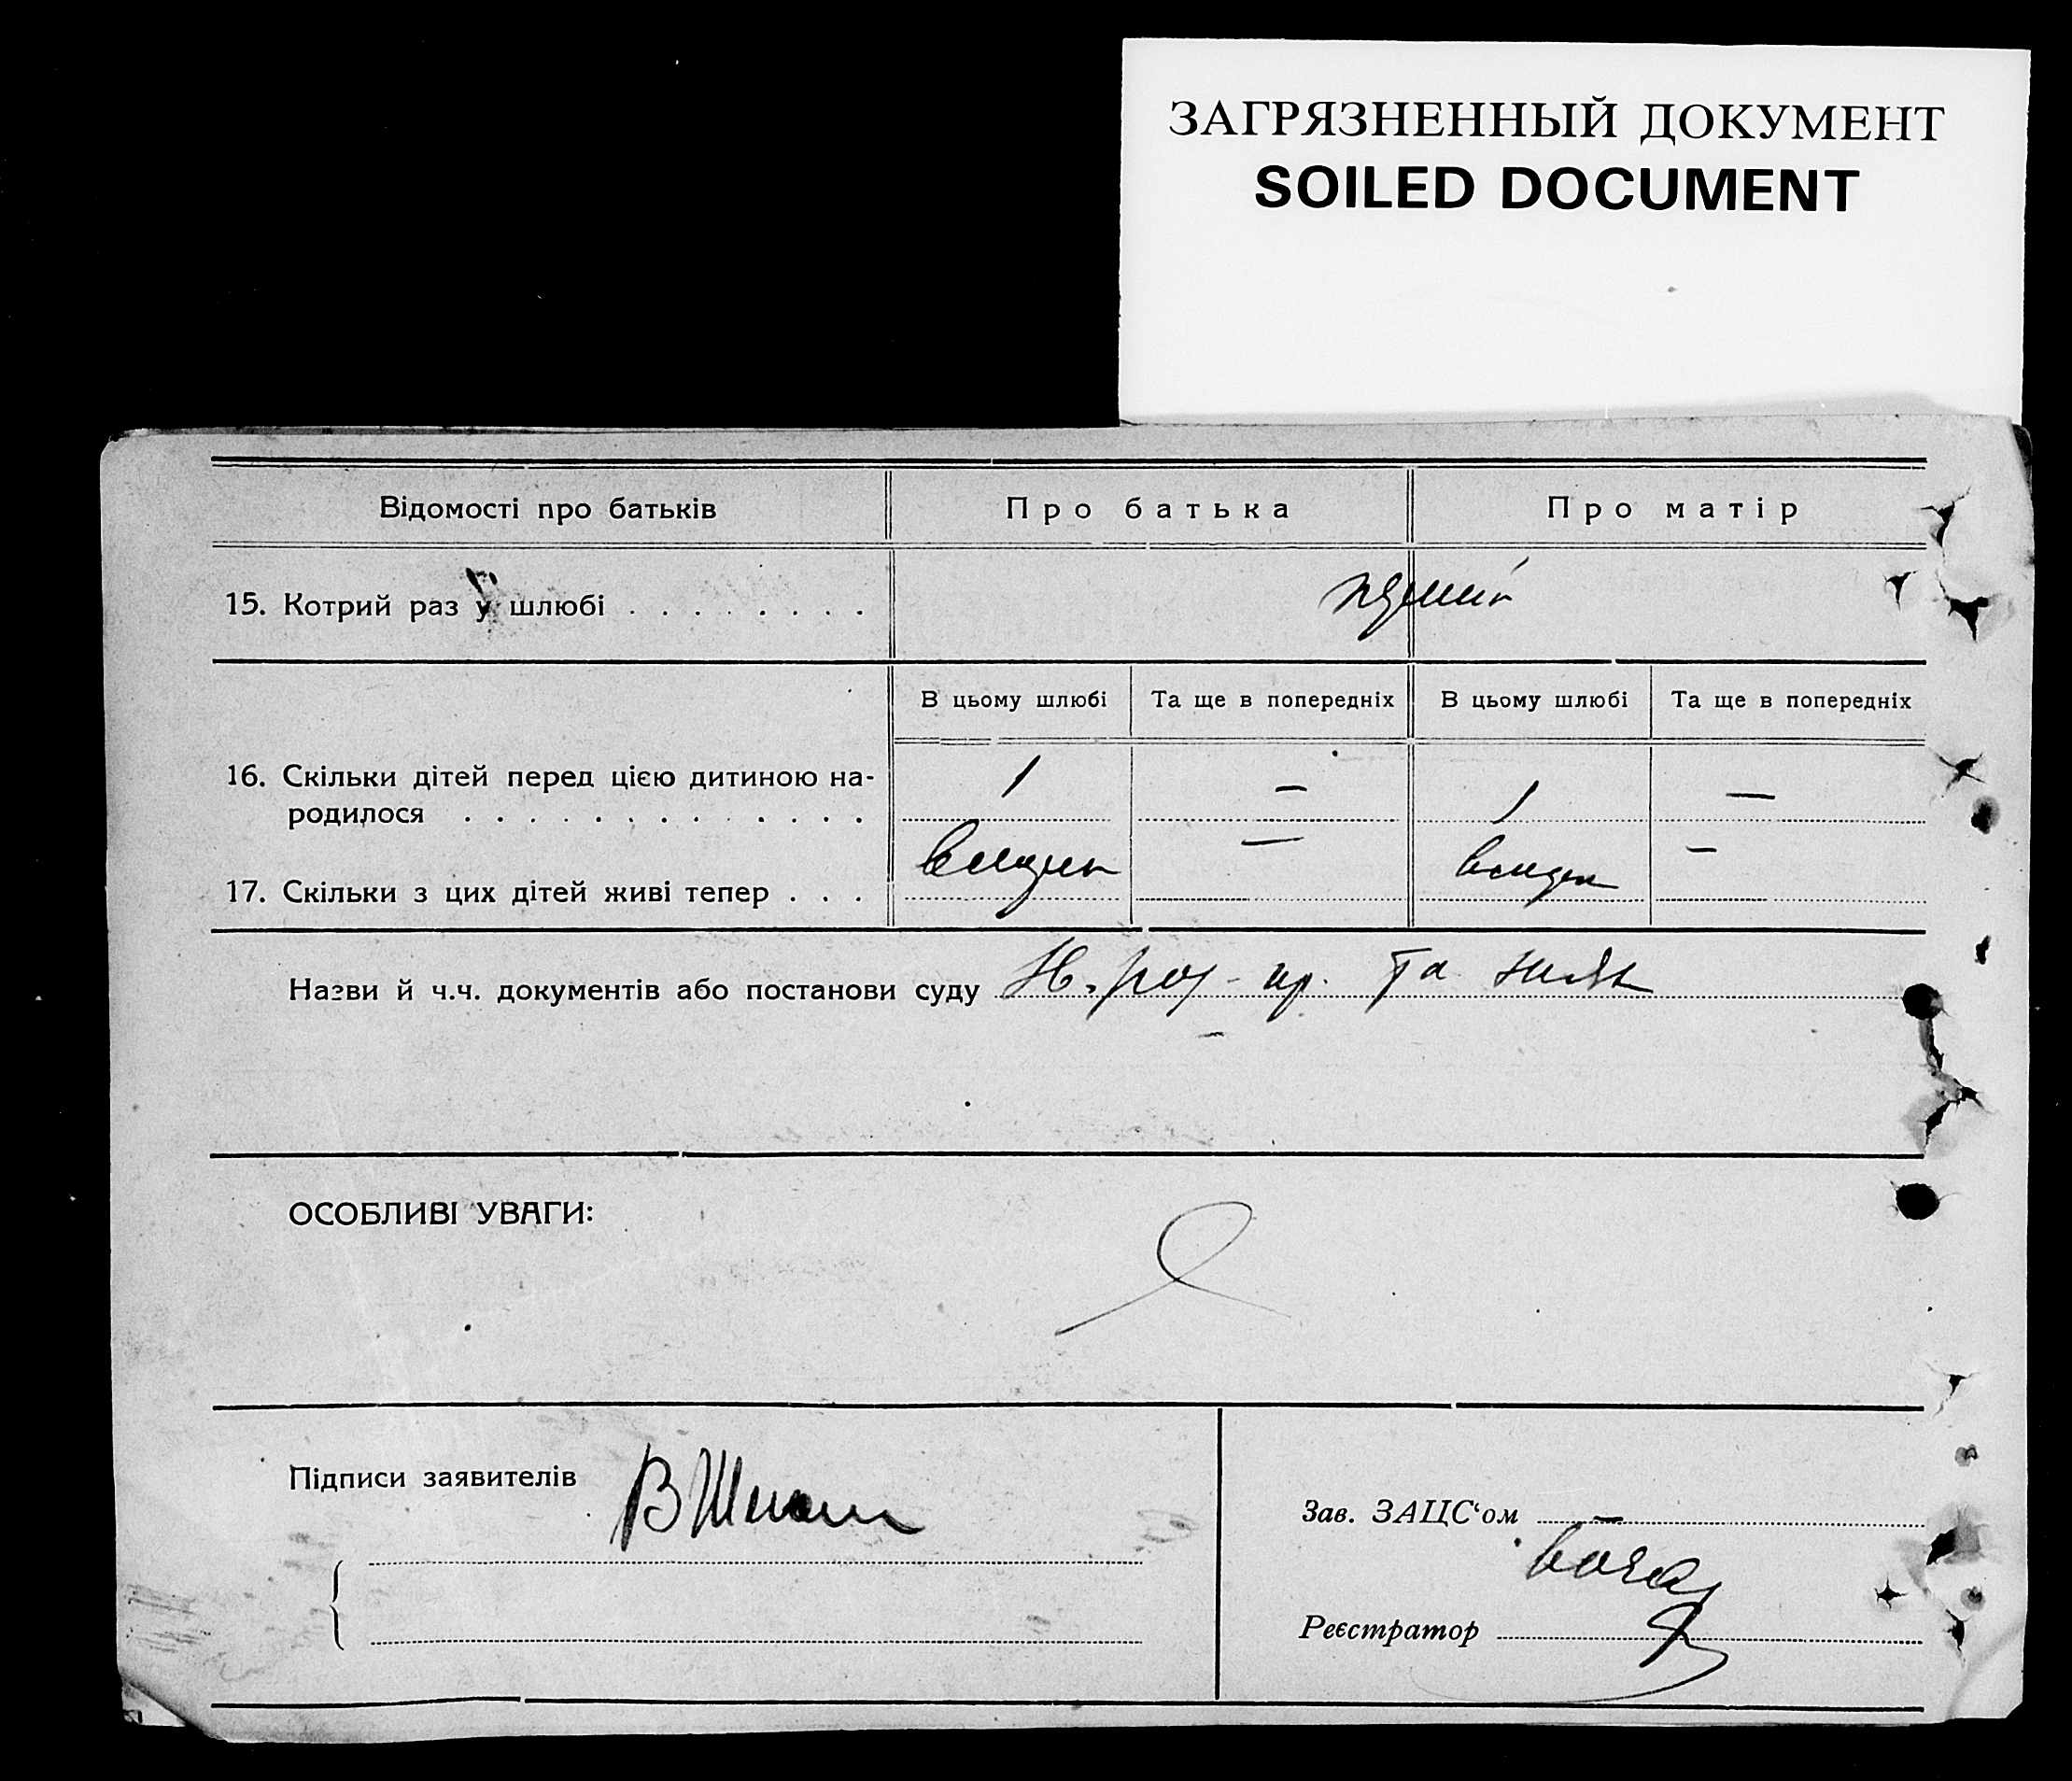 ЗАГРЯЗНЕННЫЙ ДОКУМЕНТ
SOILED DOCUMENT
Відомості про батьків Про батька Про матір
15. Котрий раз у шлюбі . . . . . . . .
В цьому шлюбі Та ще в попередніх В цьому шлюбі Та ще в попередніх
16. Скільки дітей перед цією дитиною на-
родилося . . . . . . . . . . . . . 1 — 1 —
17. Скільки з цих дітей живі тепер . . . — —
Назви й ч.ч. документів або постанови суду та
ОСОБЛИВІ УВАГИ:
Підписи заявителів
Зав. ЗАЦС‘ом —
Реєстратор